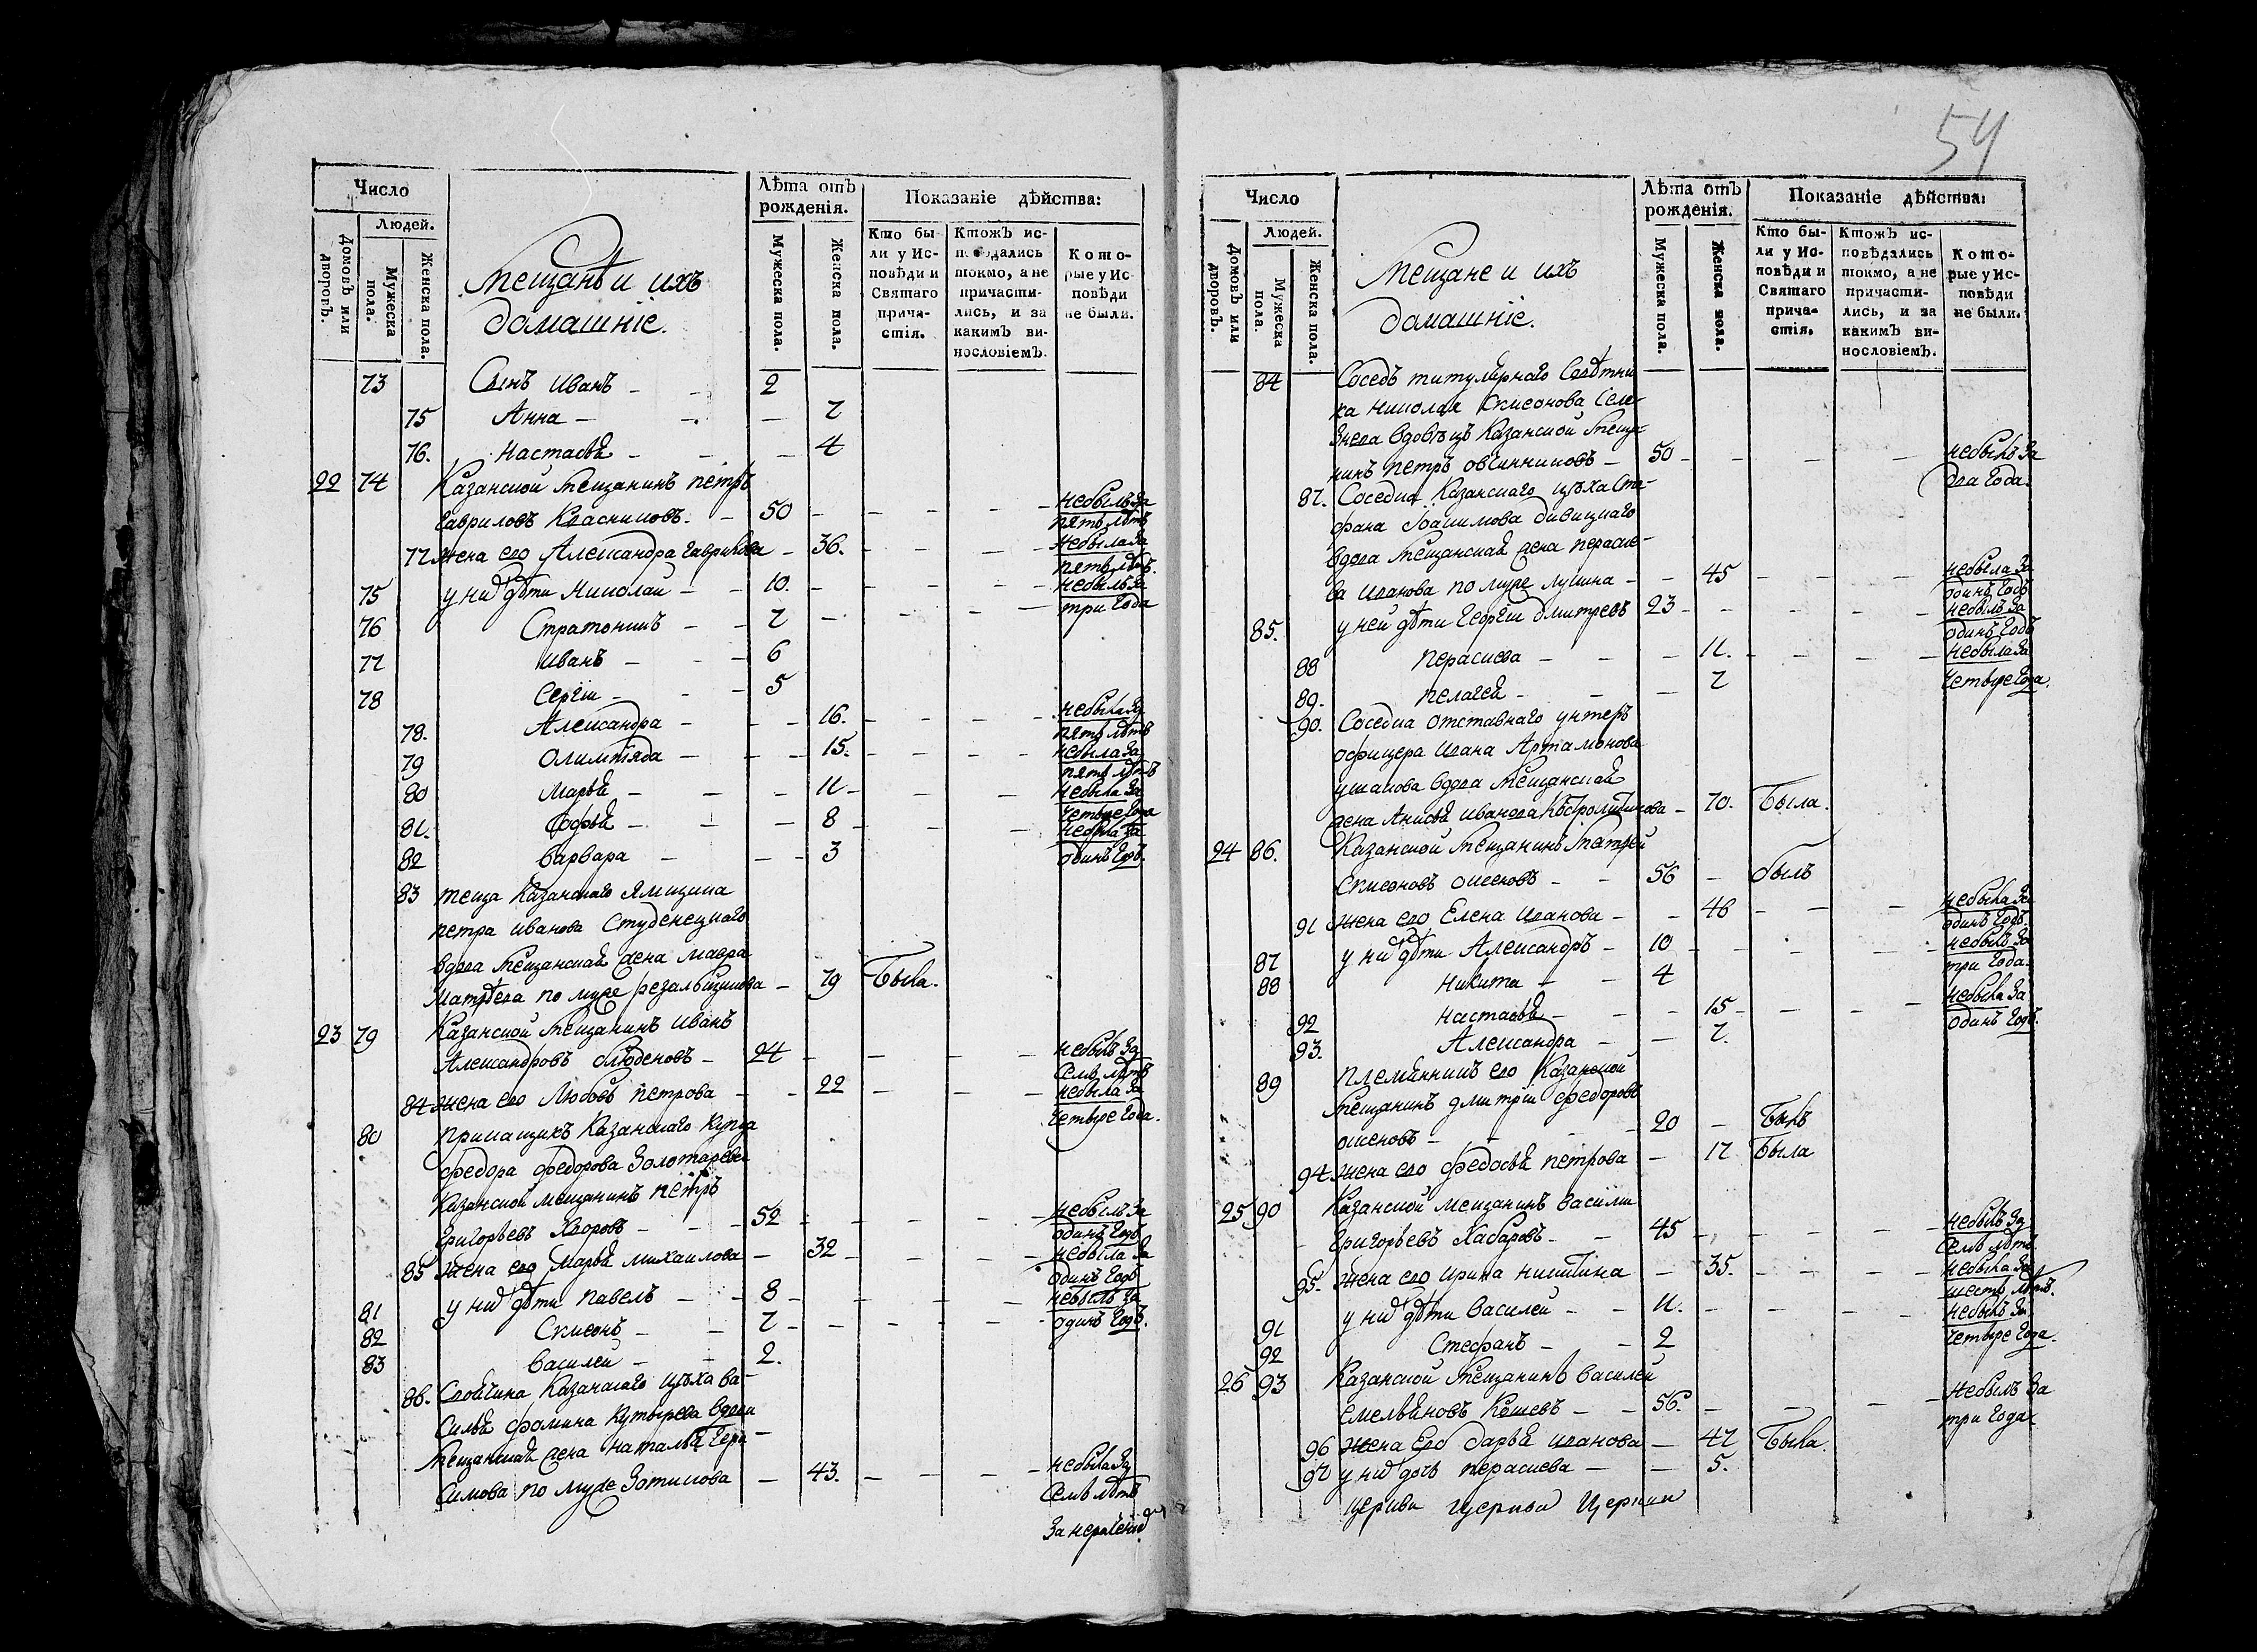 54
Число
Людей.
Домовъ или дворовъ.
Мужеска пола.
Женска пола.
Мещане и ихъ
домашніе.
Лѣта отъ рожденія.
Мужеска пола.
Женска пола.
Показаніе дѣйства:
Кто бы-
ли у Ис-
повѣди и
Святаго
прича-
стія.
Ктожъ ис-
повѣдались
токмо, а не
причасти-
лись, и за
какимъ ви-
нословіемъ.
Кото-
рые у Ис-
повѣди
не были.
73 Сынъ Иванъ - - 2
75 Анна - - - 7
76. Настасья - - - 4
22 74 Казанской мещанинъ петръ
Гавриловъ Квасниковъ. - 50 - - - - небылъ за
пять лѣтъ
77 жена его Александра Гаврилова - 36. - - - небыла за
пять лѣтъ.
75 у них дѣти Николай - - 10. - - - - небылъ за
три года
76 Стратоникъ - - 7 - - - -
77 иванъ - - - 6
78 Сергіи - - - 5
78. Александра - - - 16. - - - - небыла за
пять лѣтъ
79 Олимпіяда - - - 15. - - - - небыла за
пять лѣтъ
80 Марья - - - - 11 - - - небыла за
четыре года
81. Софья - - - - 8 - - - небыла за
одинъ годъ.
82 варвара - - - 3
83 теща Казанскаго ямщика
петра иванова Студенецкаго
вдова мещанская жена мавра
Матвѣева по муже резальщикова - 79 Была.
23 79 Казанской мещанинъ иванъ
Александровъ - 24 - - - - небылъ за
семь лѣтъ
84 жена его Любовь петрова - - 22 - - - небыла за
четыре года.
80 прикащикъ Казанскаго купца
федора федорова Золотарева
Казанской мещанинъ петръ
Григорьевъ - - - 52 - - - - небылъ за
одинъ годъ
85 жена его Марья михаилова - 32 - - - - небыла за
одинъ годъ
81 у них дѣти павелъ - - 8 - - - - небылъ за
одинъ годъ.
82 Симеонъ - - 7 - - - - -
83 василеи - - 2.
86. Своячина Казанскаго цѣха ва-
силья фомина Кутырева вдова
мещанская жена наталья Гера-
симова по муже Зотикова - 43. - - - - небыла за
семь лѣтъ
За нераченіемъ
Число
Людей.
Домовъ или дворовъ.
Мужеска пола.
Женска пола.
Мещане и ихъ
домашніе.
Лѣта отъ рожденія.
Мужеска пола.
Женска пола.
Показаніе дѣйства:
Кто бы-
ли у Ис-
повѣди и
Святаго
прича-
стія.
Ктожъ ис-
повѣдались
токмо, а не
причасти-
лись, и за
какимъ ви-
нословіемъ.
Кото-
рые у Ис-
повѣди
не были.
84 Соседъ титулярнаго Совѣтни-
ка николая Симеонова Селе-
знева вдовецъ Казанской меща-
нинъ петръ овчинниковъ - 50 - - - - небылъ за
два года.
87. Соседка Казанскаго цѣха Сте-
фана
вдова мещанская жена параске-
ва иванова по муже лукина - - 45 - - - - небыла за
одинъ годъ
85. у ней дѣти Георгіи дмитревъ 23 - - - - - небылъ за
одинъ годъ
88 параскева - - - 11. - - - - небыла за
четыре года.
89. пелагея - - - 7
90. Соседка отставнаго унтеръ
офицера ивана Артамонова
ушакова вдова мещанская
жена Анисья иванова - 70. Была.
24 86. Казанской мещанинъ Матвей
Симеоновъ - - 56 - былъ
91 жена его Елена иванова - - 46 - - - небыла за
одинъ годъ.
87 у них дѣти Александръ - 10 - - - - - небылъ за
три года.
88 Никита - - 4
92 Настасья - - - 15 - - - - небыла за
одинъ годъ.
93. Александра - - 7.
89 племянникъ его Казанской
мещанинъ дмитріи федоровъ
- - - 20 - Былъ
94 жена его федосья петрова - 17 Была
25 90 Казанской мещанинъ василіи
Григорьевъ Хабаровъ - - 45 - - - - небылъ за
семь лѣтъ.
95. жена его ирина никитина - 35. - - - - небыла за
шесть лѣтъ.
91 у них дѣти василеи - - 11. - - - - - небылъ за
четыре года.
92 Стефанъ - - 2
26 93 Казанской мещанинъ василеи
емельяновъ - - 56. - - - - Небылъ за
три года
96 жена Его дарья иванова - 47 Была.
97 у них дочь параскева - - 5.
церкви церкви Церкви